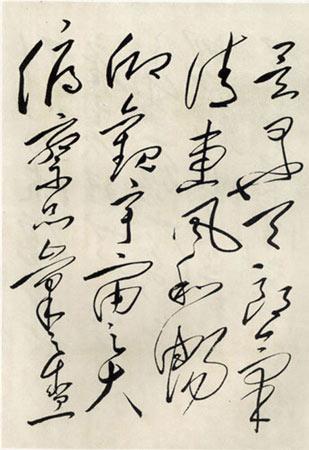 是日也天朗氣
清惠風和暢
仰觀宇宙之大
俯察品類之盛